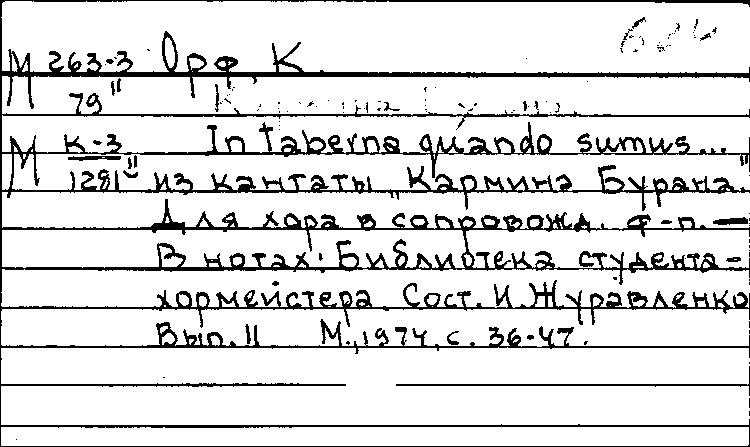 М 263-3 Орф, К.
79"
Кармина Бурана.
М К-3 In taberna quando sumus...
1281" из кантаты „Кармина Бурана."
Для хора в сопровожд. ф-п. —
В нотах: Библиотека студента-
хормейстера. Сост. И. Журавленко
Вып. 11 М., 1974, с. 36-47.